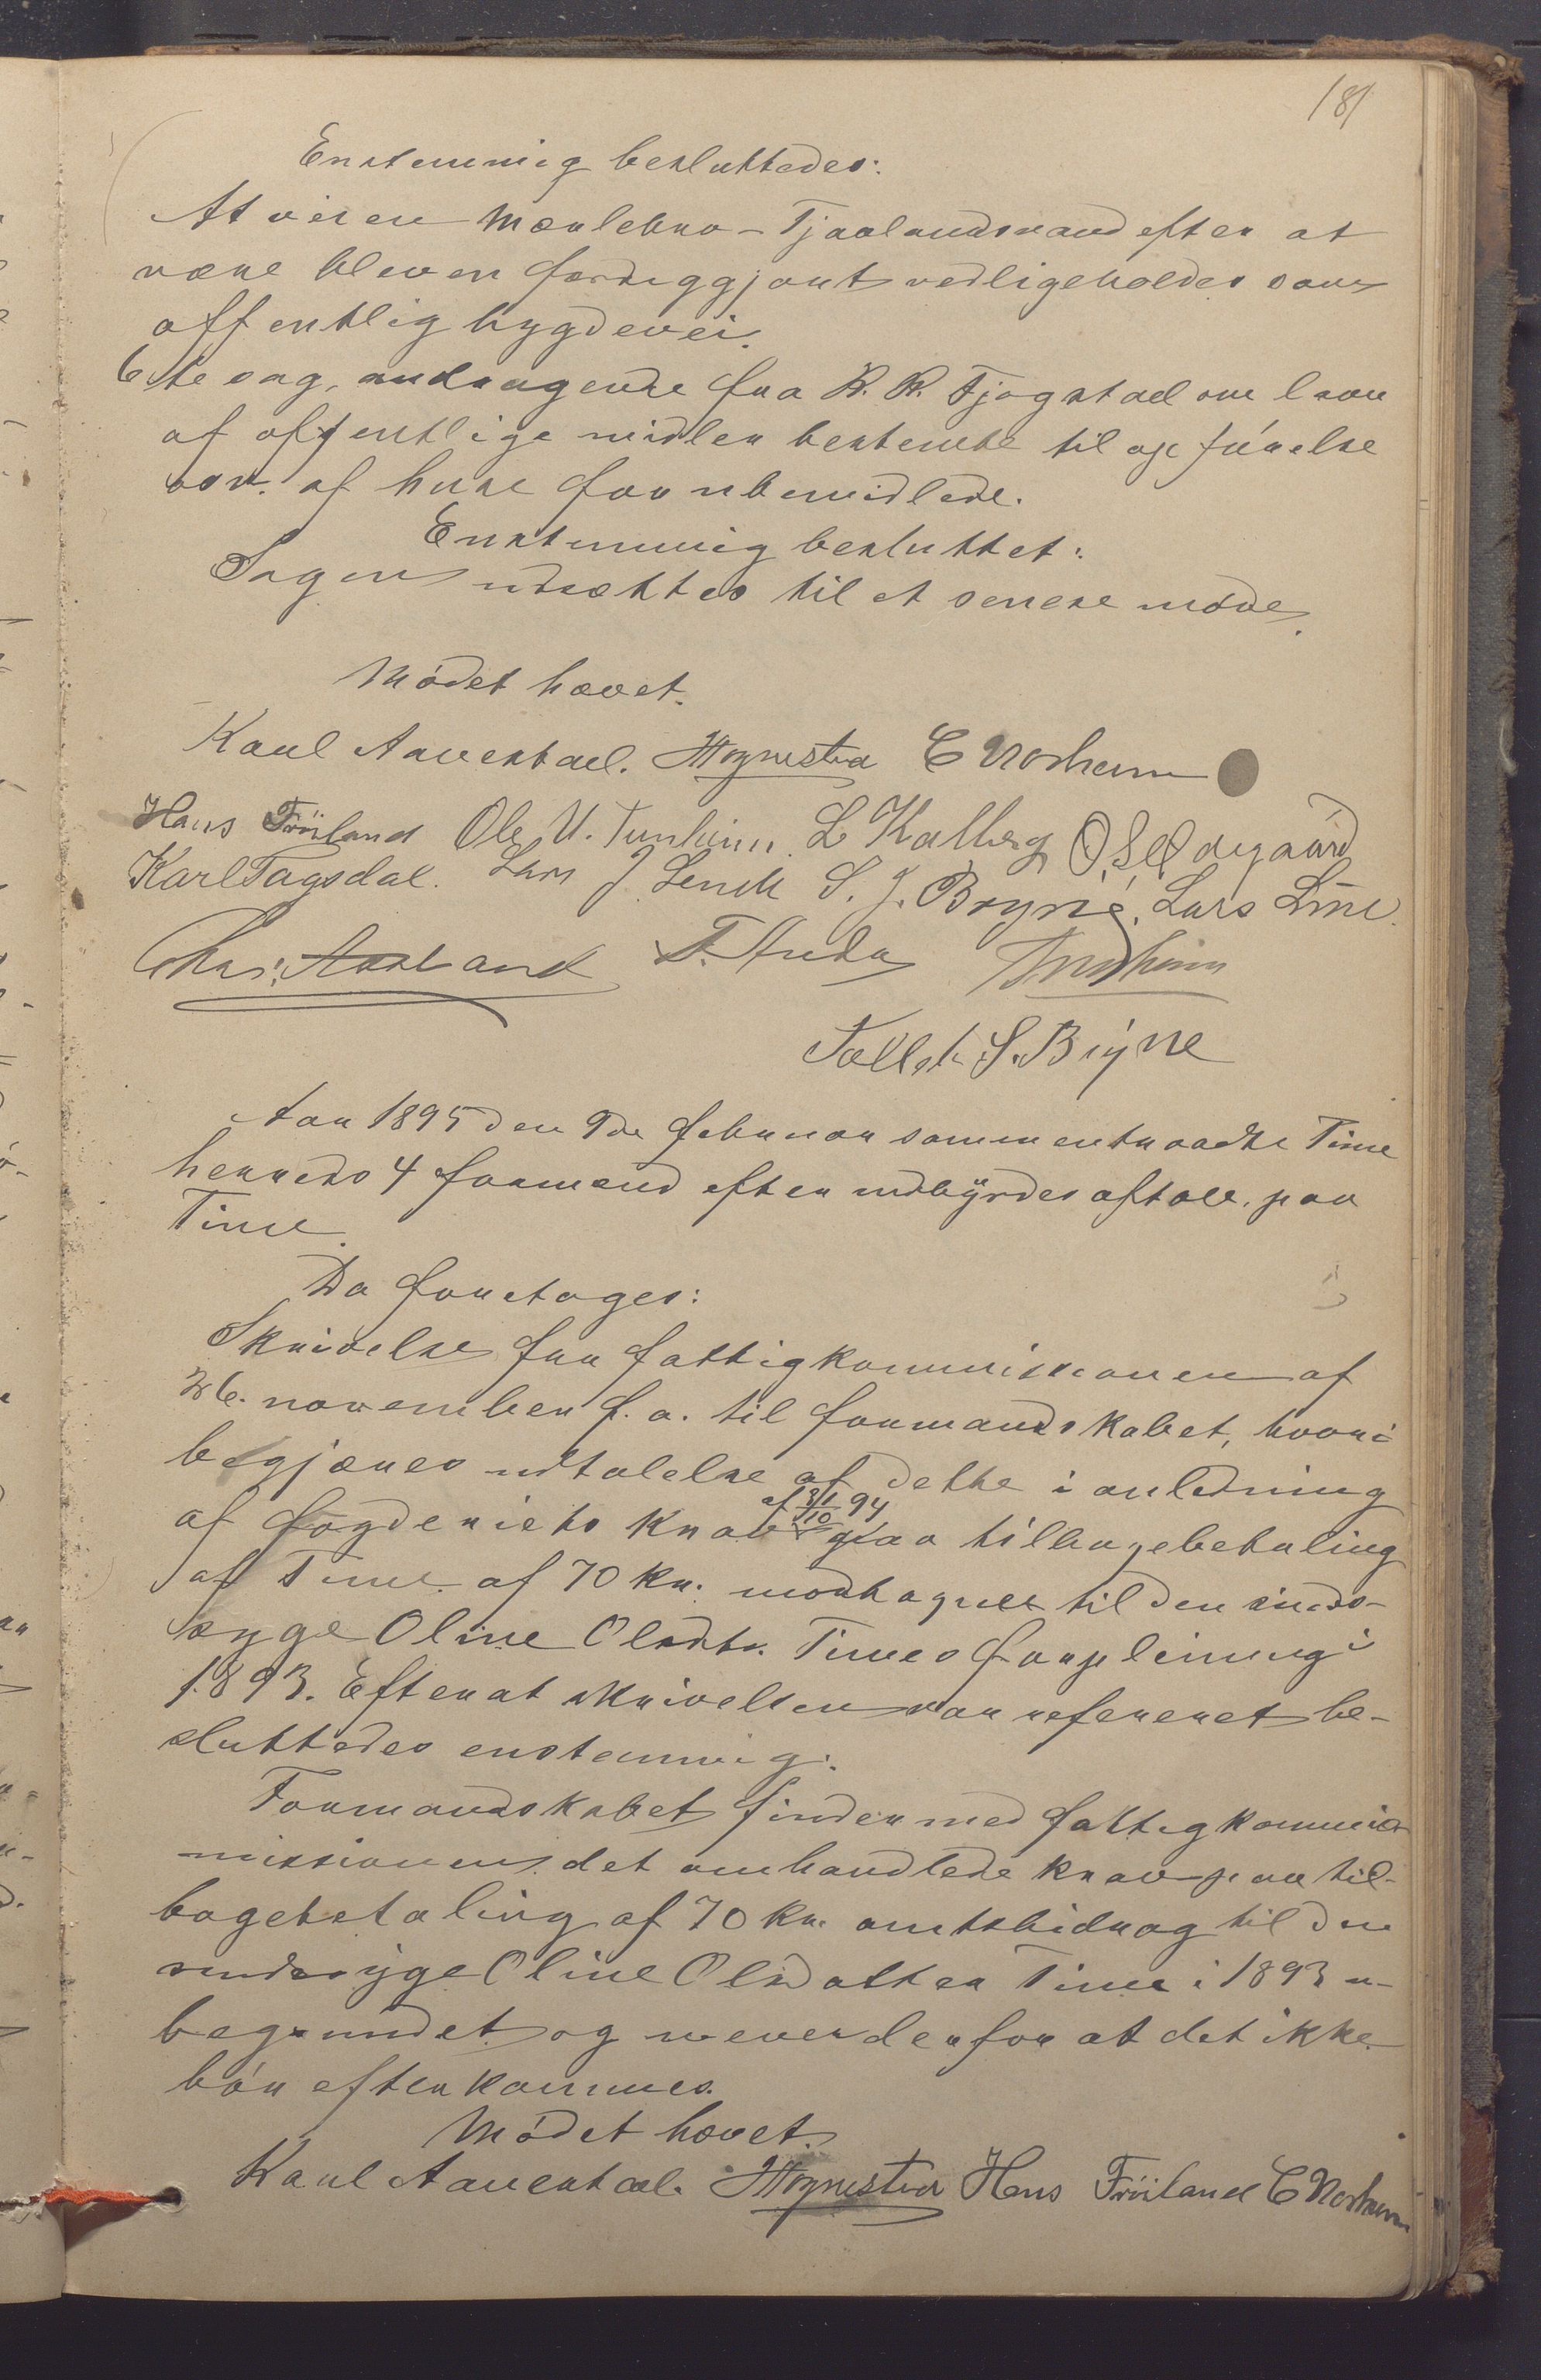 181
Enstemmig besluttedes:
At veien Mælebro - Tjaalandsvand efter at
være bleven færdiggjort vedligeholdes som
offentlig bygdevei.
6te sag, andragende fra R. R. Fjogstad om laan
af offentlige midler bestemte til opførelse
osv. af huse for ubemidlede.
Enstemmig besluttet:
Sagen udsættes til et senere møde.
Mødet hævet.
Karl Aarestad. Hognestad C Norheim
Hans Fröiland Ole U. Tunheim L Kalberg O. S. Ødegaard
Karl Tagsdal. Lars J. Lende S. J. Bryne. Lars Line
Chr. Aasland T. Anda
S. Bryne
Aar 1895 den 9de februar sammentraadte Time
herreds 4 formænd efter indbyrdes aftale paa
Time.
Da foretages:
Skrivelse fra fattigkommissionen af
26. november f. a. til formandskabet, hvori
begjæres udtalelse af dette i anledning
af fogderiets krav af 31/10 94 paa tilbagebetaling
af Time af 70 kr. modtagne til den sinds-
syge Oline Olsdtr. Times forpleining i
1893. Efterat skrivelsen var referert be-
sluttedes enstemmig:
Formandskabet finder med fattigkommis-
missionen det omhandlede krav paa til-
bagebetaling af 70 kr. amtsbidrag til den
sindssyge Oline Olsdatter Time i 1893 u-
begrundet og mener derfor at det ikke
bør efterkommes.
Mødet hævet.
Karl Aarestad. Hognestad Hans Fröiland C Norheim